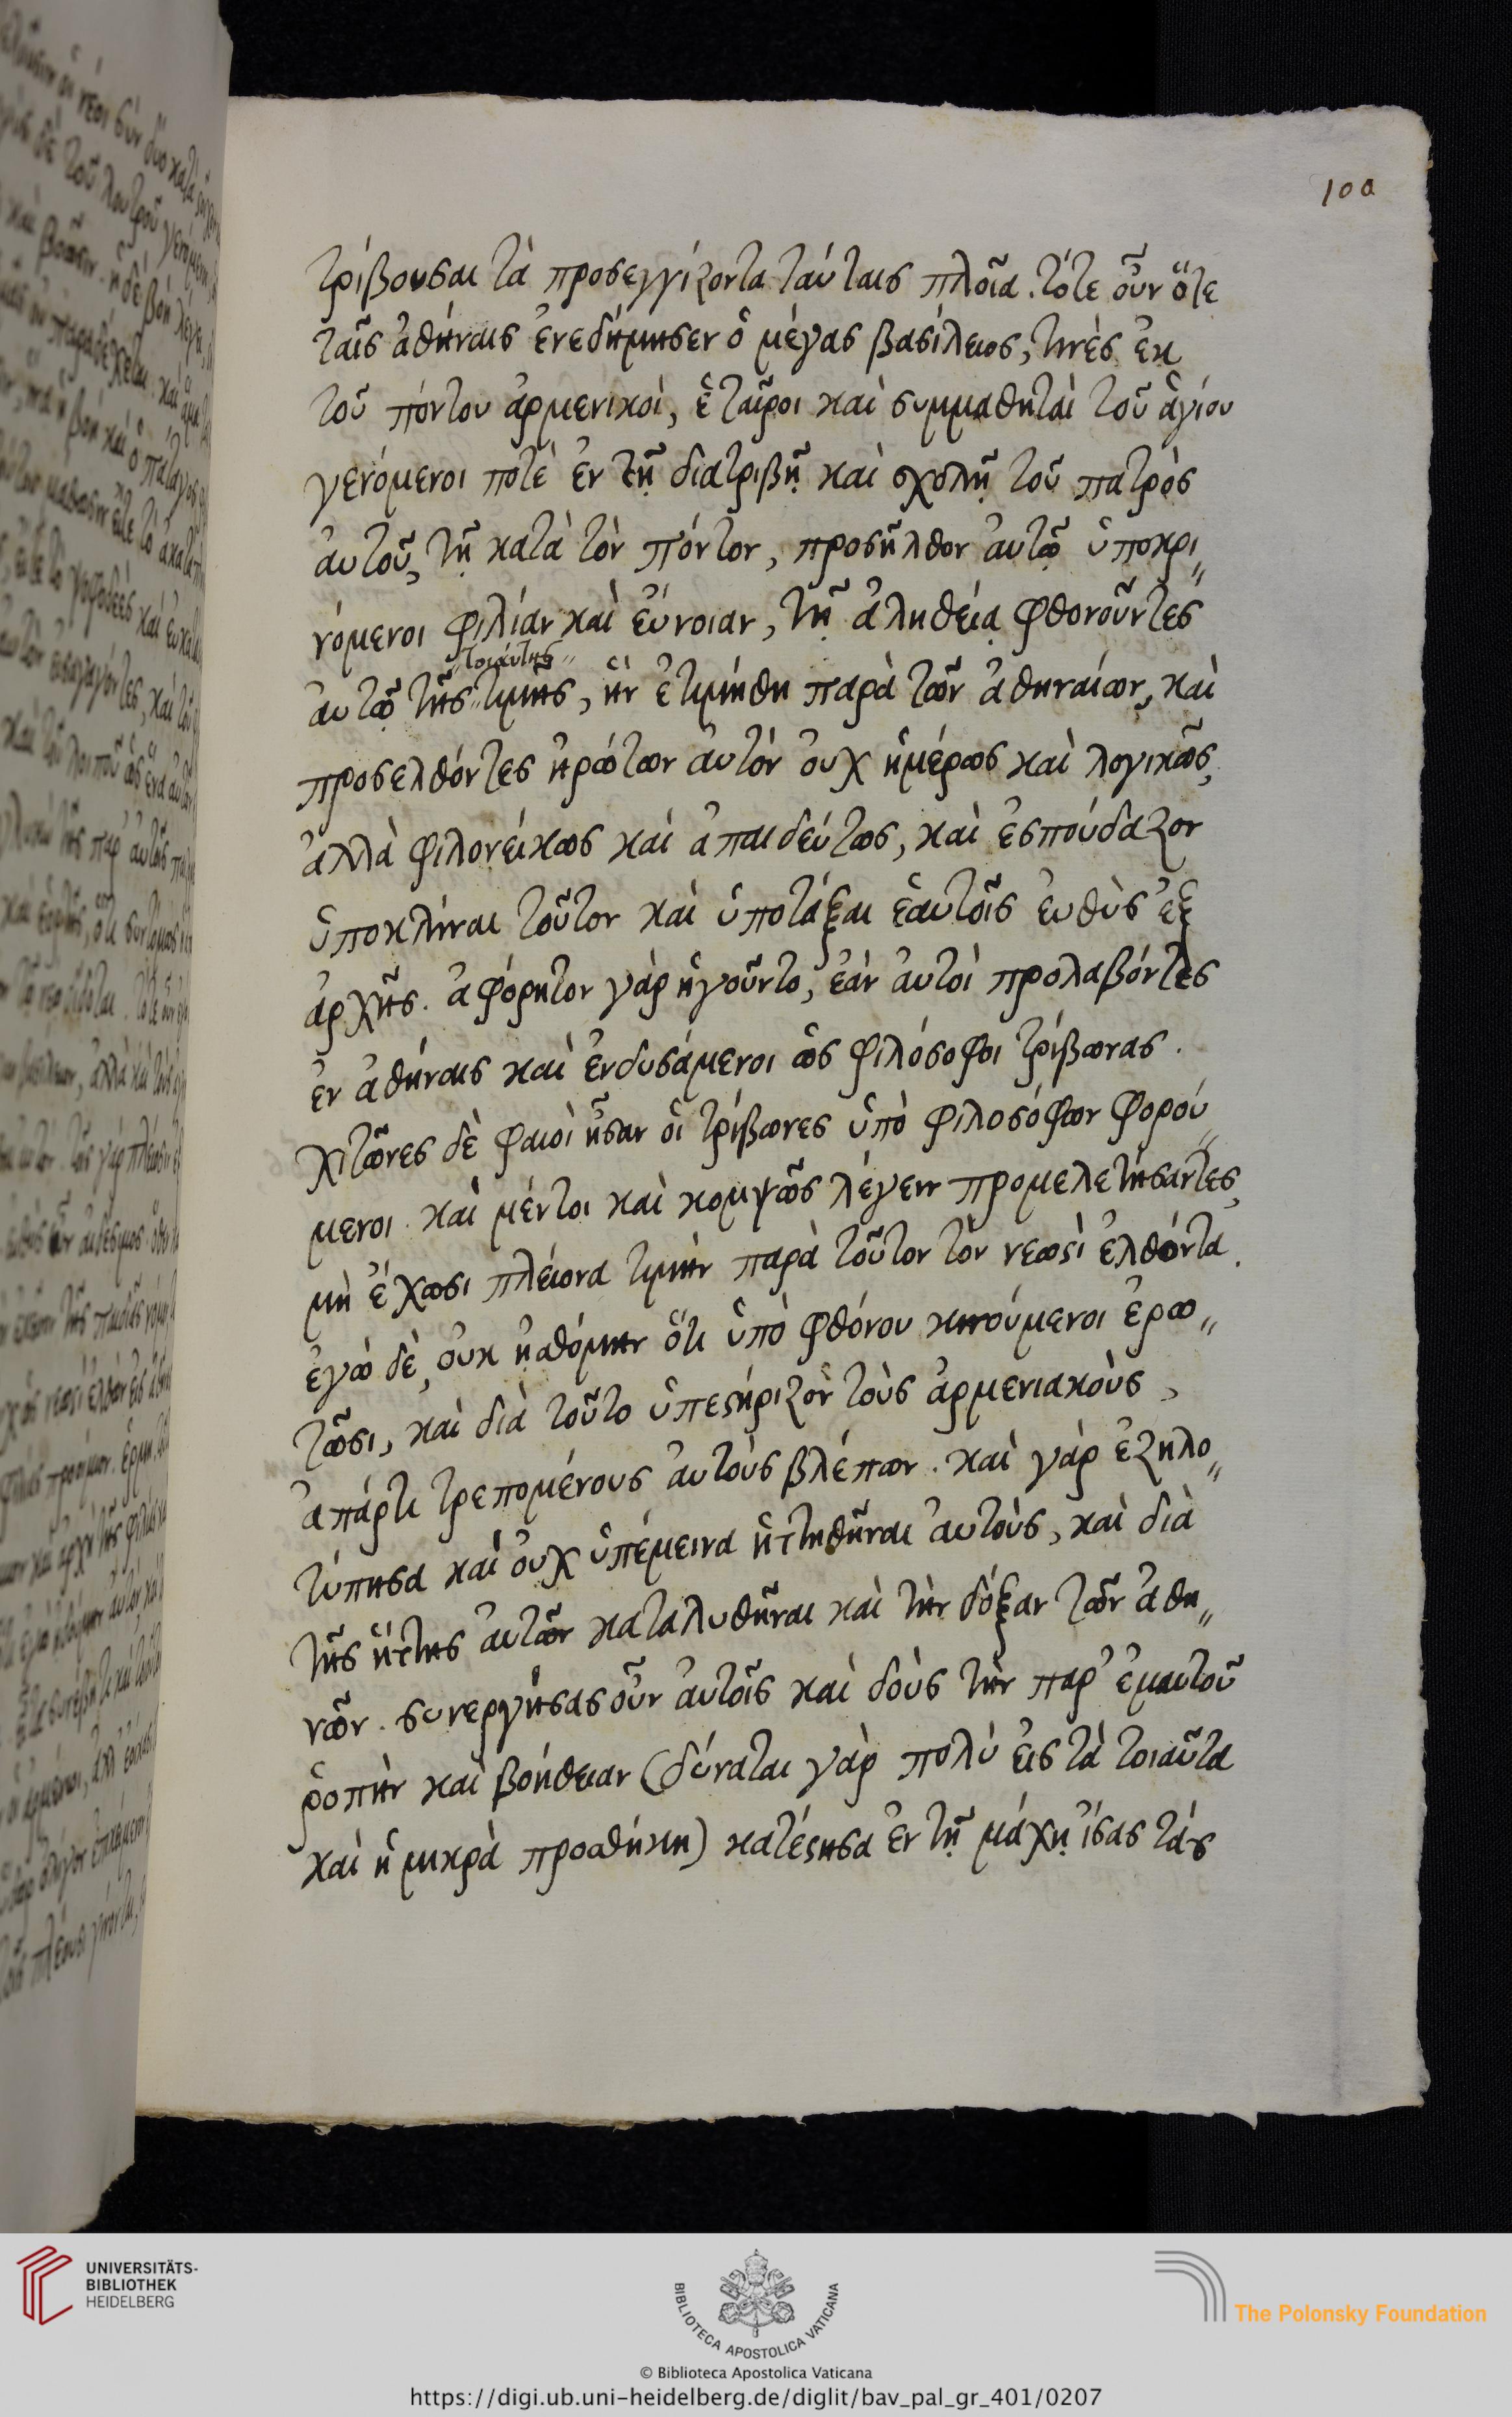 100
τρίβουσαι τὰ προσεγγίζοντα ταύταις πλοῖα. τότε οὖν ὅτε
ταῖς ἀθήναις ἐνεδήμησεν ὁ μέγας βασίλειος, τινὲς ἐκ
τοῦ πόντου ἀρμενικοὶ, ἑταῖροι καὶ συμμαθηταὶ τοῦ ἁγίου
γενόμενοι ποτὲ ἐν τῇ διατριβῇ καὶ σχολῇ τοῦ πατρὸς
αὐτοῦ, τῇ κατὰ τὸν πόντον, προσῆλθον αὐτῷ ὑποκρι〃
νόμενοι φιλίαν καὶ εὔνοιαν, τῇ ἀληθείᾳ φθονοῦντες
〃τοιαύτης〃
αὐτῷ τῆς〃τιμῆς, ἣν ἐτιμήθη παρὰ τῶν ἀθηναίων, καὶ
προσελθόντες ἠρώτων αὐτὸν οὐχ ἡμέρως καὶ λογικῶς,
ἀλλὰ φιλονείκως καὶ ἀπαιδεύτως, καὶ ἐσπούδαζον
ὑποκλῖναι τοῦτον καὶ ὑποτάξαι ἑαυτοῖς εὐθὺς ἐξ
ἀρχῆς. ἀφόρητον γὰρ ἡγοῦντο, ἐὰν αὐτοὶ προλαβόντες
ἐν ἀθήναις καὶ ἐνδυσάμενοι ὡς φιλόσοφοι τρίβωνας.
χιτῶνες δὲ φαιοὶ ἦσαν οἱ τρίβωνες ὑπὸ φιλοσόφων φορού〃
μενοι. καὶ μέντοι καὶ κομψῶς λέγειν προμελετήσαντες,
μὴ ἔχωσι πλείονα τιμὴν παρὰ τοῦτον τὸν νεωϛὶ ἐλθόντα.
ἐγὼ δὲ, οὐκ ᾐσθόμην ὅτι ὑπὸ φθόνου κινούμενοι ἐρω〃
τῶσι, καὶ διὰ τοῦτο ὑπεϛήριζον τοὺς ἀρμενιακοὺς,
ἀπάρτι τρεπομένους αὐτοὺς βλέπων. καὶ γὰρ ἐζηλο〃
τύπησα καὶ οὐχ ὑπέμεινα ἡττηθῆναι αὐτοὺς, καὶ διὰ
τῆς ἥττης αὐτῶν καταλυθῆναι καὶ τὴν δόξαν τῶν ἀθη〃
νῶν. συνεργήσας οὖν αὐτοῖς καὶ δοὺς τὴν παρ’ ἐμαυτοῦ
ῥοπὴν καὶ βοήθειαν (δύναται γὰρ πολύ εἰς τὰ τοιαῦτα
καὶ ἡ μικρὰ προσθήκη) κατέϛησα ἐν τῇ μάχῃ ἴσας τάς
UNIVERSITÄTS-
BIBLIOTHEK
HEIDELBERG
BIBLIOTECA APOSTOLICA VATICANA
The Polonsky Foundation
© Biblioteca Apostolica Vaticana
https://digi.ub.uni-heidelberg.de/diglit/bav_pal_gr_401/0207